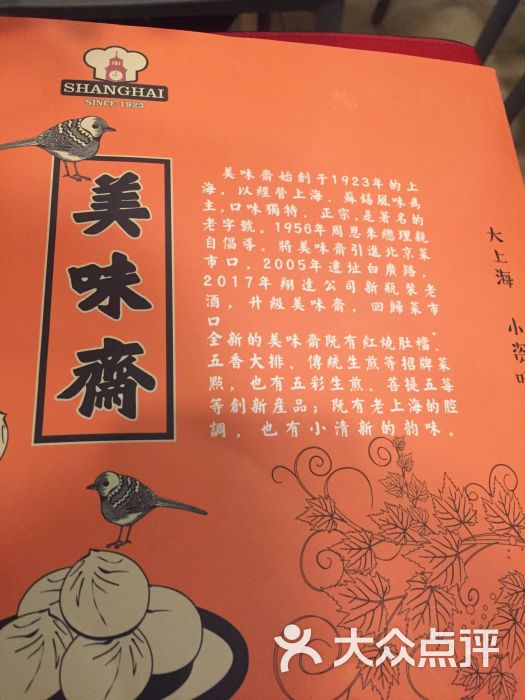 SHANGHAI
SINCE 1923
美味齋
美味齋始創于1923年的上
海，以經營上海、蘇錫風味爲
主,口味獨特、正宗,是著名的
老字號。1956年周恩來總理親
自倡導，將美味齋引進北京菜
市口，2005年遷址白廣路，
2017年翔達公司新瓶裝老
酒，升級美味齋，回歸菜市
口。
全新的美味齋既有紅燒肚檔、
五香大排、傳統生煎等招牌菜
點，也有五彩生煎、菩提五莓
等創新産品；既有老上海的腔
調，也有小清新的韵味。
大上海 小资味
大众点评